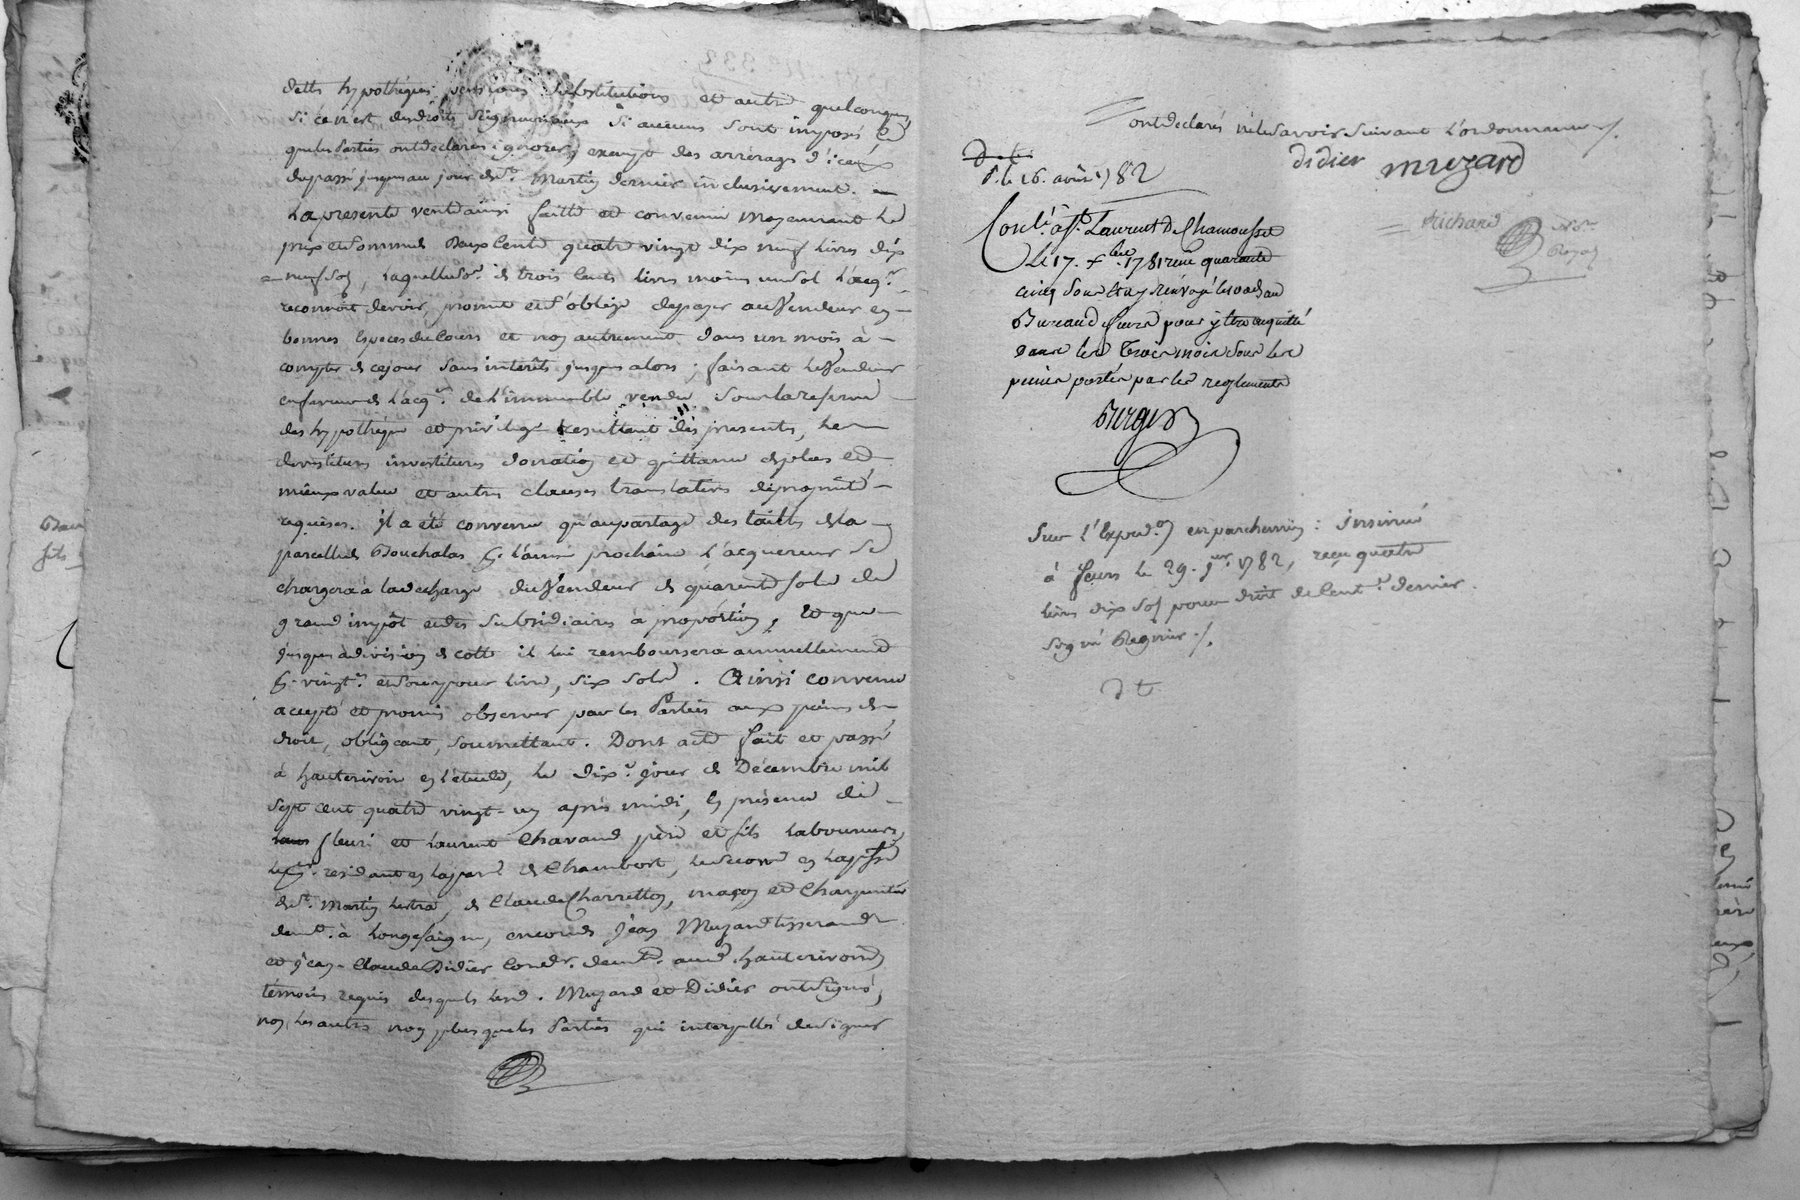 dette hypothéques pensions substitutions et autre quelconques
si ce n'est des droits seigneuriaux si aucuns sont imposés et
que les Parties ont declarés ignorer, exempt des arrérages d'iceux
du passé jusques au jour de St. Martin dernier inclusivement.
La presente vente ainsi faitte et convenue moyennant le
prix et somme de Deux Cents quatre vingt dix neuf livres dix
neuf sols, laquelle de trois cents livres moins un sol l'acqr.
reconnoit devoir, promet et s'oblige de payer au Vendeur en
bonnes Especes du Cours et non autrement dans un mois, à
compter de ce jour sans interêts jusques alors; faisant le Vendeur
en faveur de l'acqr. de l'immeuble vendu sous la reserve
des hypotheque et privilege resultant des presents, les
devestitures investitures donation et quittance de plus et
mieux value et autres clauses translatives de proprieté
requises. Il a été convenu qu'au partage des tailles de la
parcelle de Bouchalas l'année prochaine l'acquereur se
chargera à la decharge du Vendeur de quarente sols de
grand impôt et des subsidiaires à proportion, et que
jusques à division de cotte il lui remboursera annuellement
vingt. et sour pour livre, six sols. Ainsi convenu
accepté et promis observer par les Parties aux peines de
droit, obligeant, soumettant. Dont acte fait et passé
à hauterivoire en l'étude, le dixe. jour de Décembre mil
sept cent quatre vingt-un après midi, en présence de
fleuri et Laurent Chavand père et fils laboureurs,
le per. residant en la parr. de Chambost, le second en la psse
de St. Martin lestra, de Claude Charretton, maçon et Charpentier
demt. à Longesaigne, encore de Jean Muzard tisserand
et Jean-Claude Didier Cordr. demts. aud. hauterivoire
temoins requis desquels lesd. Muzard et Didier ont signé,
non les autres non plus que les Parties qui interpellés de signer
ont declarés ne le savoir suivant l'ordonnance ./.
didier muzard
Richard Nore. Royal
D. le 16. août 1782
Contlé. à St. Laurent De Chamousset
Le 17. Xbre. 1781 reçu quarante
cinq sous et ay renvoyé les au
Bureau de feurs pour y être acquitté
dans les Trois mois sous les
peines portées par les reglements
Burger
Sur l'Expedon. en parchemin: Insinué
à feurs le 29. Jer. 1782, reçu quatre
livres dix sols pour droit de Centr. denier.
Signé Regnier ./.